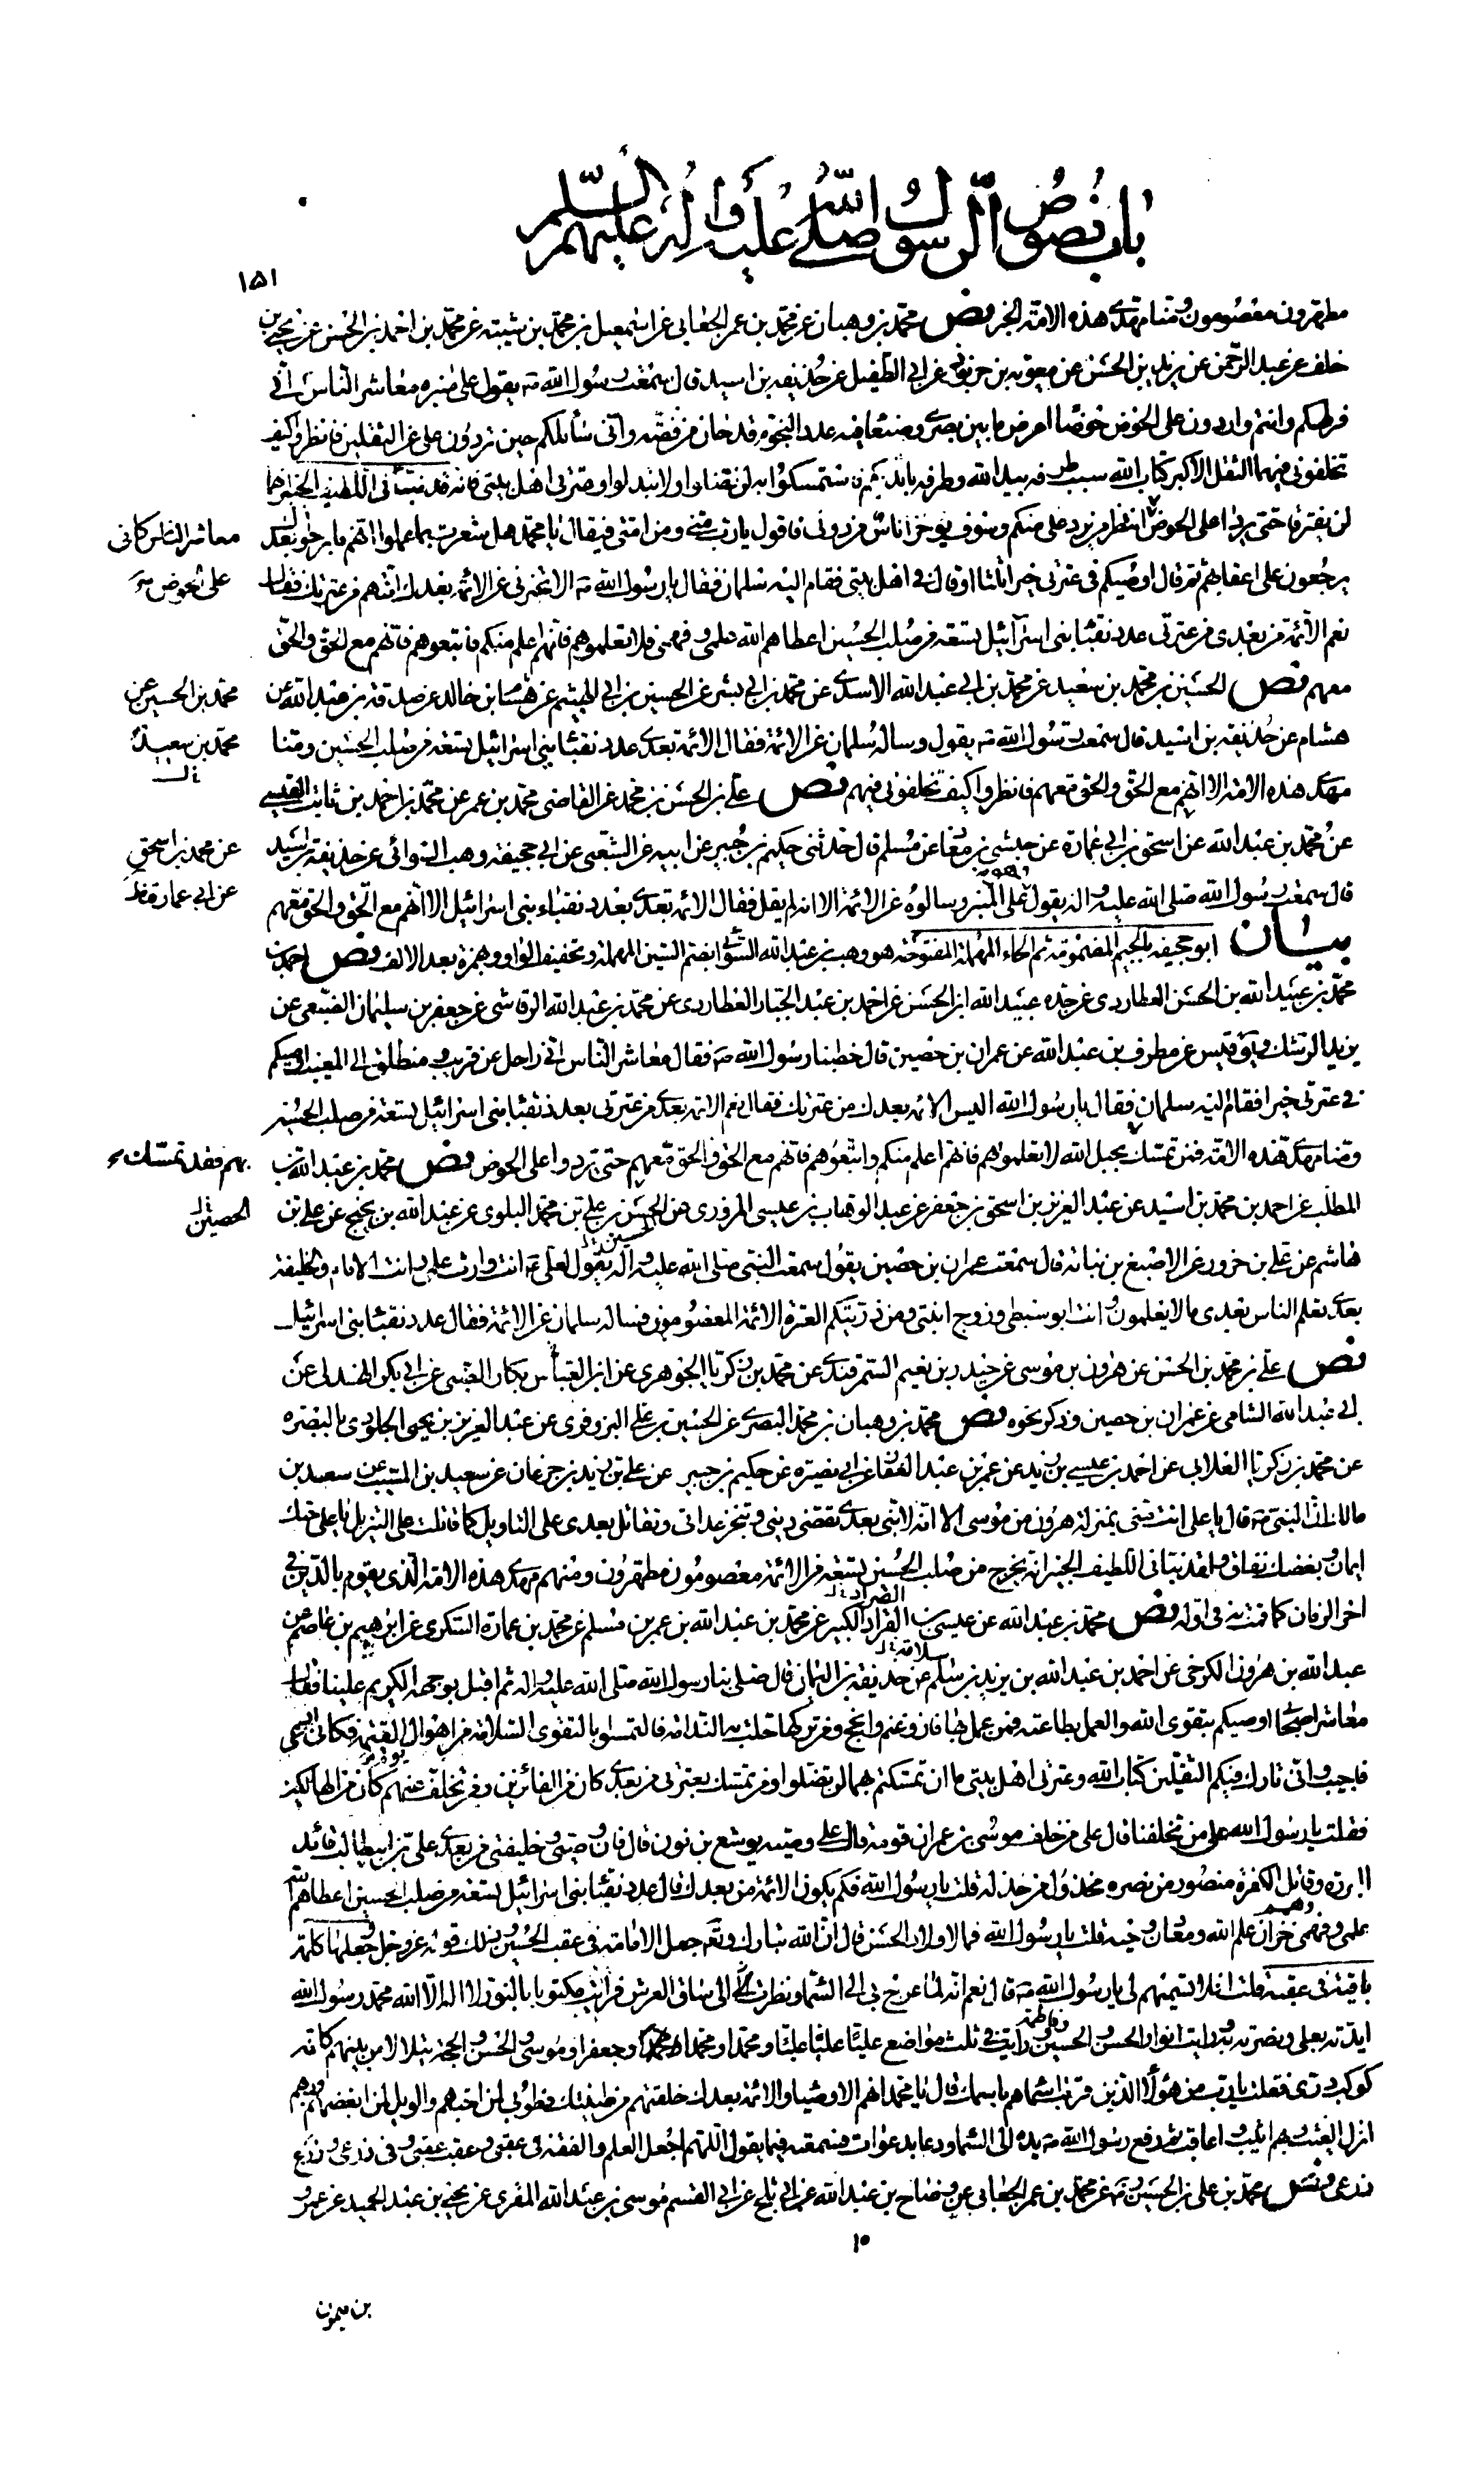 باب نصوص الرسول صلى الله عليه واله عليهم السلم
١٥١
مطهرون معصومون ومنا مهدى هذه الامة الخبر نص محمد بن وهبان عن محمد بن عمر الجعابى عن اسمعيل بن محمد بن شيبة عن محمد بن احمد بن الحسن عن يحيى بن
خلف عن عبد الرحمن عن يزيد بن الحسن عن معروف بن خربوذ عن ابى الطفيل عن حذيفة بن اسيد قال سمعت رسول الله ص يقول على منبره معاشر الناس انى
فرطكم وانتم واردون على الحوض حوضا اعرض ما بين بصرى وصنعا فيه عدد النجوم قدحان من فضة وانى سائلكم حين تردون على عن الثقلين فانظروا كيف
تخلفونى فيهما الثقل الاكبر كتاب الله سبب طرفه بيد الله وطرفه بايديكم فاستمسكوا به لن تضلوا ولا تبدلوا وعترتى اهل بيتى فانه قد نبأنى اللطيف الخبير انهما
لن يفترقا حتى يردا على الحوض انتظر من يرد على منكم وسوف يؤخر اناس من دونى فاقول يا رب منى ومن امتى فيقال يا محمد هل شعرت بما عملوا انهم ما برحوا بعدك
معاشر الناس كانى
يرجعون على اعقابهم ثم قال اوصيكم فى عترتى خيرا ثلثا او قال فى اهل بيتى فقام اليه سلمان فقال يا رسول الله ص الا تخبرنى عن الائمة بعدك اما هم من عترتك فقال
على الحوض
نعم الائمة من بعدى من عترتى عدد نقباء بنى اسرائيل تسعة من صلب الحسين اعطاهم الله علمى وفهمى فلا تعلموهم فانهم اعلم منكم فاتبعوهم فانهم مع الحق والحق
معهم نص الحسين بن محمد بن سعيد عن محمد بن ابى عبد الله الاسدى عن محمد بن ابى بشر عن الحسين بن ابى الهيثم عن هشام بن خالد عن صدقة بن عبد الله عن
محمد بن الحسين عن
هشام عن حذيفة بن اسيد قال سمعت رسول الله ص يقول وساله سلمان عن الائمة فقال الائمة بعدى عدد نقباء بنى اسرائيل تسعة من صلب الحسين ومنا
محمد بن سعيد
مهدى هذه الامة الا انهم مع الحق والحق معهم فانظروا كيف تخلفونى فيهم نص على بن الحسن بن محمد عن القاضى محمد بن عمر عن محمد بن احمد بن ثابت القيسى
عن محمد بن عبد الله عن اسحق بن ابى عمارة عن حبشى بن معا عن مسلم قال حدثنى حكيم بن جبير عن ابيه عن الشعبى عن ابى جحيفة وهب السوائى عن حذيفة بن اسيد
عن محمد بن اسحق
قال سمعت رسول الله صلى الله عليه واله يقول على المنبر وسالوه عن الائمة الا انه لم يقل فقال الائمة بعدى بعدد نقباء بنى اسرائيل الا انهم مع الحق والحق معهم
عن ابى عمارة
بيان ابو جحيفة بالجيم المضمومة ثم الحاء المهملة المفتوحة هو وهب بن عبد الله السوائى بضم السين المهملة وتخفيف الواو وهمزة بعد الالف نص احمد بن
محمد بن عبيد الله بن الحسن العطاردى عن جده عبيد الله ابن الحسن عن احمد بن عبد الجبار العطاردى عن محمد بن عبد الله الرقاشى عن جعفر بن سليمان الضبعى عن
يزيد الرشك عن مطرف بن عبد الله عن عمران بن حصين قال خطبنا رسول الله ص فقال معاشر الناس انى راحل عن قريب ومنطلق الى المغيب اوصيكم
فى عترتى خيرا فقام اليه سلمان فقال يا رسول الله اليس الائمة بعدك من عترتك فقال نعم الائمة بعدى من عترتى بعدد نقباء بنى اسرائيل تسعة من صلب الحسين
ومنا مهدى هذه الامة فمن تمسك بحبل الله لا تعلموهم فانهم اعلم منكم واتبعوهم فانهم مع الحق والحق معهم حتى يردوا على الحوض نص محمد بن عبد الله بن
بهم فقد تمسك
المطلب عن احمد بن محمد بن اسيد عن عبد العزيز بن اسحق بن جعفر عن عبد الوهاب بن عيسى المروزى عن الحسن بن على بن محمد البلوى عن عبد الله بن نجيح عن على بن
الحصين
الحسين
هاشم عن على بن حزور عن الاصبغ بن نباتة قال سمعت عمران بن حصين يقول سمعت النبى صلى الله عليه واله يقول لعلى ع انت وارث علمى وانت الامام والخليفة
بعدى تعلم الناس بعدى ما لا يعلمون وانت ابو سبطى وزوج ابنتى ومن ذريتكم العترة الائمة المعصومون فساله سلمان عن الائمة فقال عدد نقباء بنى اسرائيل
نص على بن محمد بن الحسن عن هرون بن موسى عن حيدر بن نعيم السمرقندى عن محمد بن زكريا الجوهرى عن ابن العباس بكار الضبى عن ابى بكر الهذلى عن
ابى عبد الله الشامى عن عمران بن حصين وذكر نحوه نص محمد بن وهبان بن محمد البصرى عن الحسين بن على البزوفرى عن عبد العزيز بن يحيى الجلودى بالبصرة
عن محمد بن زكريا الغلابى عن احمد بن عيسى بن زيد عن عمر بن عبد الغفار عن ابى بصيره عن حكيم بن جبير عن على بن زيد بن جدعان عن سعيد بن المسيب عن سعد بن
مالك ان النبى ص قال يا على انت منى بمنزلة هرون من موسى الا انه لا نبى بعدى تقضى دينى وتنجز عداتى وتقاتل بعدى على التاويل كما قاتلت على التنزيل يا على حبك
ايمان وبغضك نفاق ولقد نبأنى اللطيف الخبير انه يخرج من صلب الحسين تسعة من الائمة معصومون مطهرون ومنهم مهدى هذه الامة الذى يقوم بالدين فى
اخر الزمان كما قمت به فى اوله نص محمد بن عبد الله عن عيسى بن الفراد الكبير عن محمد بن عبد الله بن عمر بن مسلم عن محمد بن عمارة السكرى عن ابرهيم بن عاصم عن
عبد الله بن هرون الكرخى عن احمد بن عبد الله بن يزيد بن سلم عن حذيفة بن اليمان قال صلى بنا رسول الله صلى الله عليه واله ثم اقبل بوجهه الكريم علينا فقال
سلامة
معاشر اصحابى اوصيكم بتقوى الله والعمل بطاعته فمن عمل بها فاز وغنم وانجح ومن تركها حلت به الندامة فالتمسوا بالتقوى السلامة من اهوال القيمة فكانى ادعى
فاجيب وانى تارك فيكم الثقلين كتاب الله وعترتى اهل بيتى ما ان تمسكتم بهما لن تضلوا ومن تمسك بعترتى من بعدى كان من الفائزين ومن تخلف عنهم كان من الهالكين
فقلت يا رسول الله على من تخلفنا قال على من خلف موسى بن عمران قومه قال على وصيه يوشع بن نون قال فان وصيى وخليفتى من بعدى على بن ابيطالب قائد
البررة وقاتل الكفرة منصور من نصره مخذول من خذله قلت يا رسول الله فكم يكون الائمة من بعدك قال عدد نقباء بنى اسرائيل تسعة من صلب الحسين اعطاهم الله
علمى وفهمى خزان علم الله ومعادن وحيه قلت يا رسول الله فما لاولاد الحسن قال ان الله تبارك وتعالى جعل الامامة فى عقب الحسين وذلك قوله عز وجل وجعلها كلمة
باقية فى عقبه قلت افلا تسميهم لى يا رسول الله ص قال نعم انه لما عرج بى الى السماء ونظرت الى ساق العرش فرايت مكتوبا بالنور لا اله الا الله محمد رسول الله
ايدته بعلى ونصرته به ورايت انوار الحسن والحسين وفاطمة ورايت فى ثلث مواضع عليا عليا عليا ومحمدا ومحمدا وجعفرا وموسى والحسن والحجة يتلالا من بينهم كانه
كوكب درى فقلت يا رب من هؤلاء الذين قرنت اسماءهم باسمك قال يا محمد انهم الاوصياء والائمة بعدك خلقتهم من طينتك فطوبى لمن احبهم والويل لمن ابغضهم فبهم
انزل الغيث وبهم اثيب واعاقب ثم رفع رسول الله ص يده الى السماء ودعا بدعوات فسمعته فيما يقول اللهم اجعل العلم والفقه فى عقبى وعقب عقبى وفى زرعى وزرع
زرعى نص محمد بن على بن الحسين عن محمد بن عمر الجعابى عن وضاح بن عبد الله عن ابى بلج عن ابى القسم موسى بن عبد الله المقرى عن يحيى بن عبد الحميد عن عمرو
١٠
بن ميمون